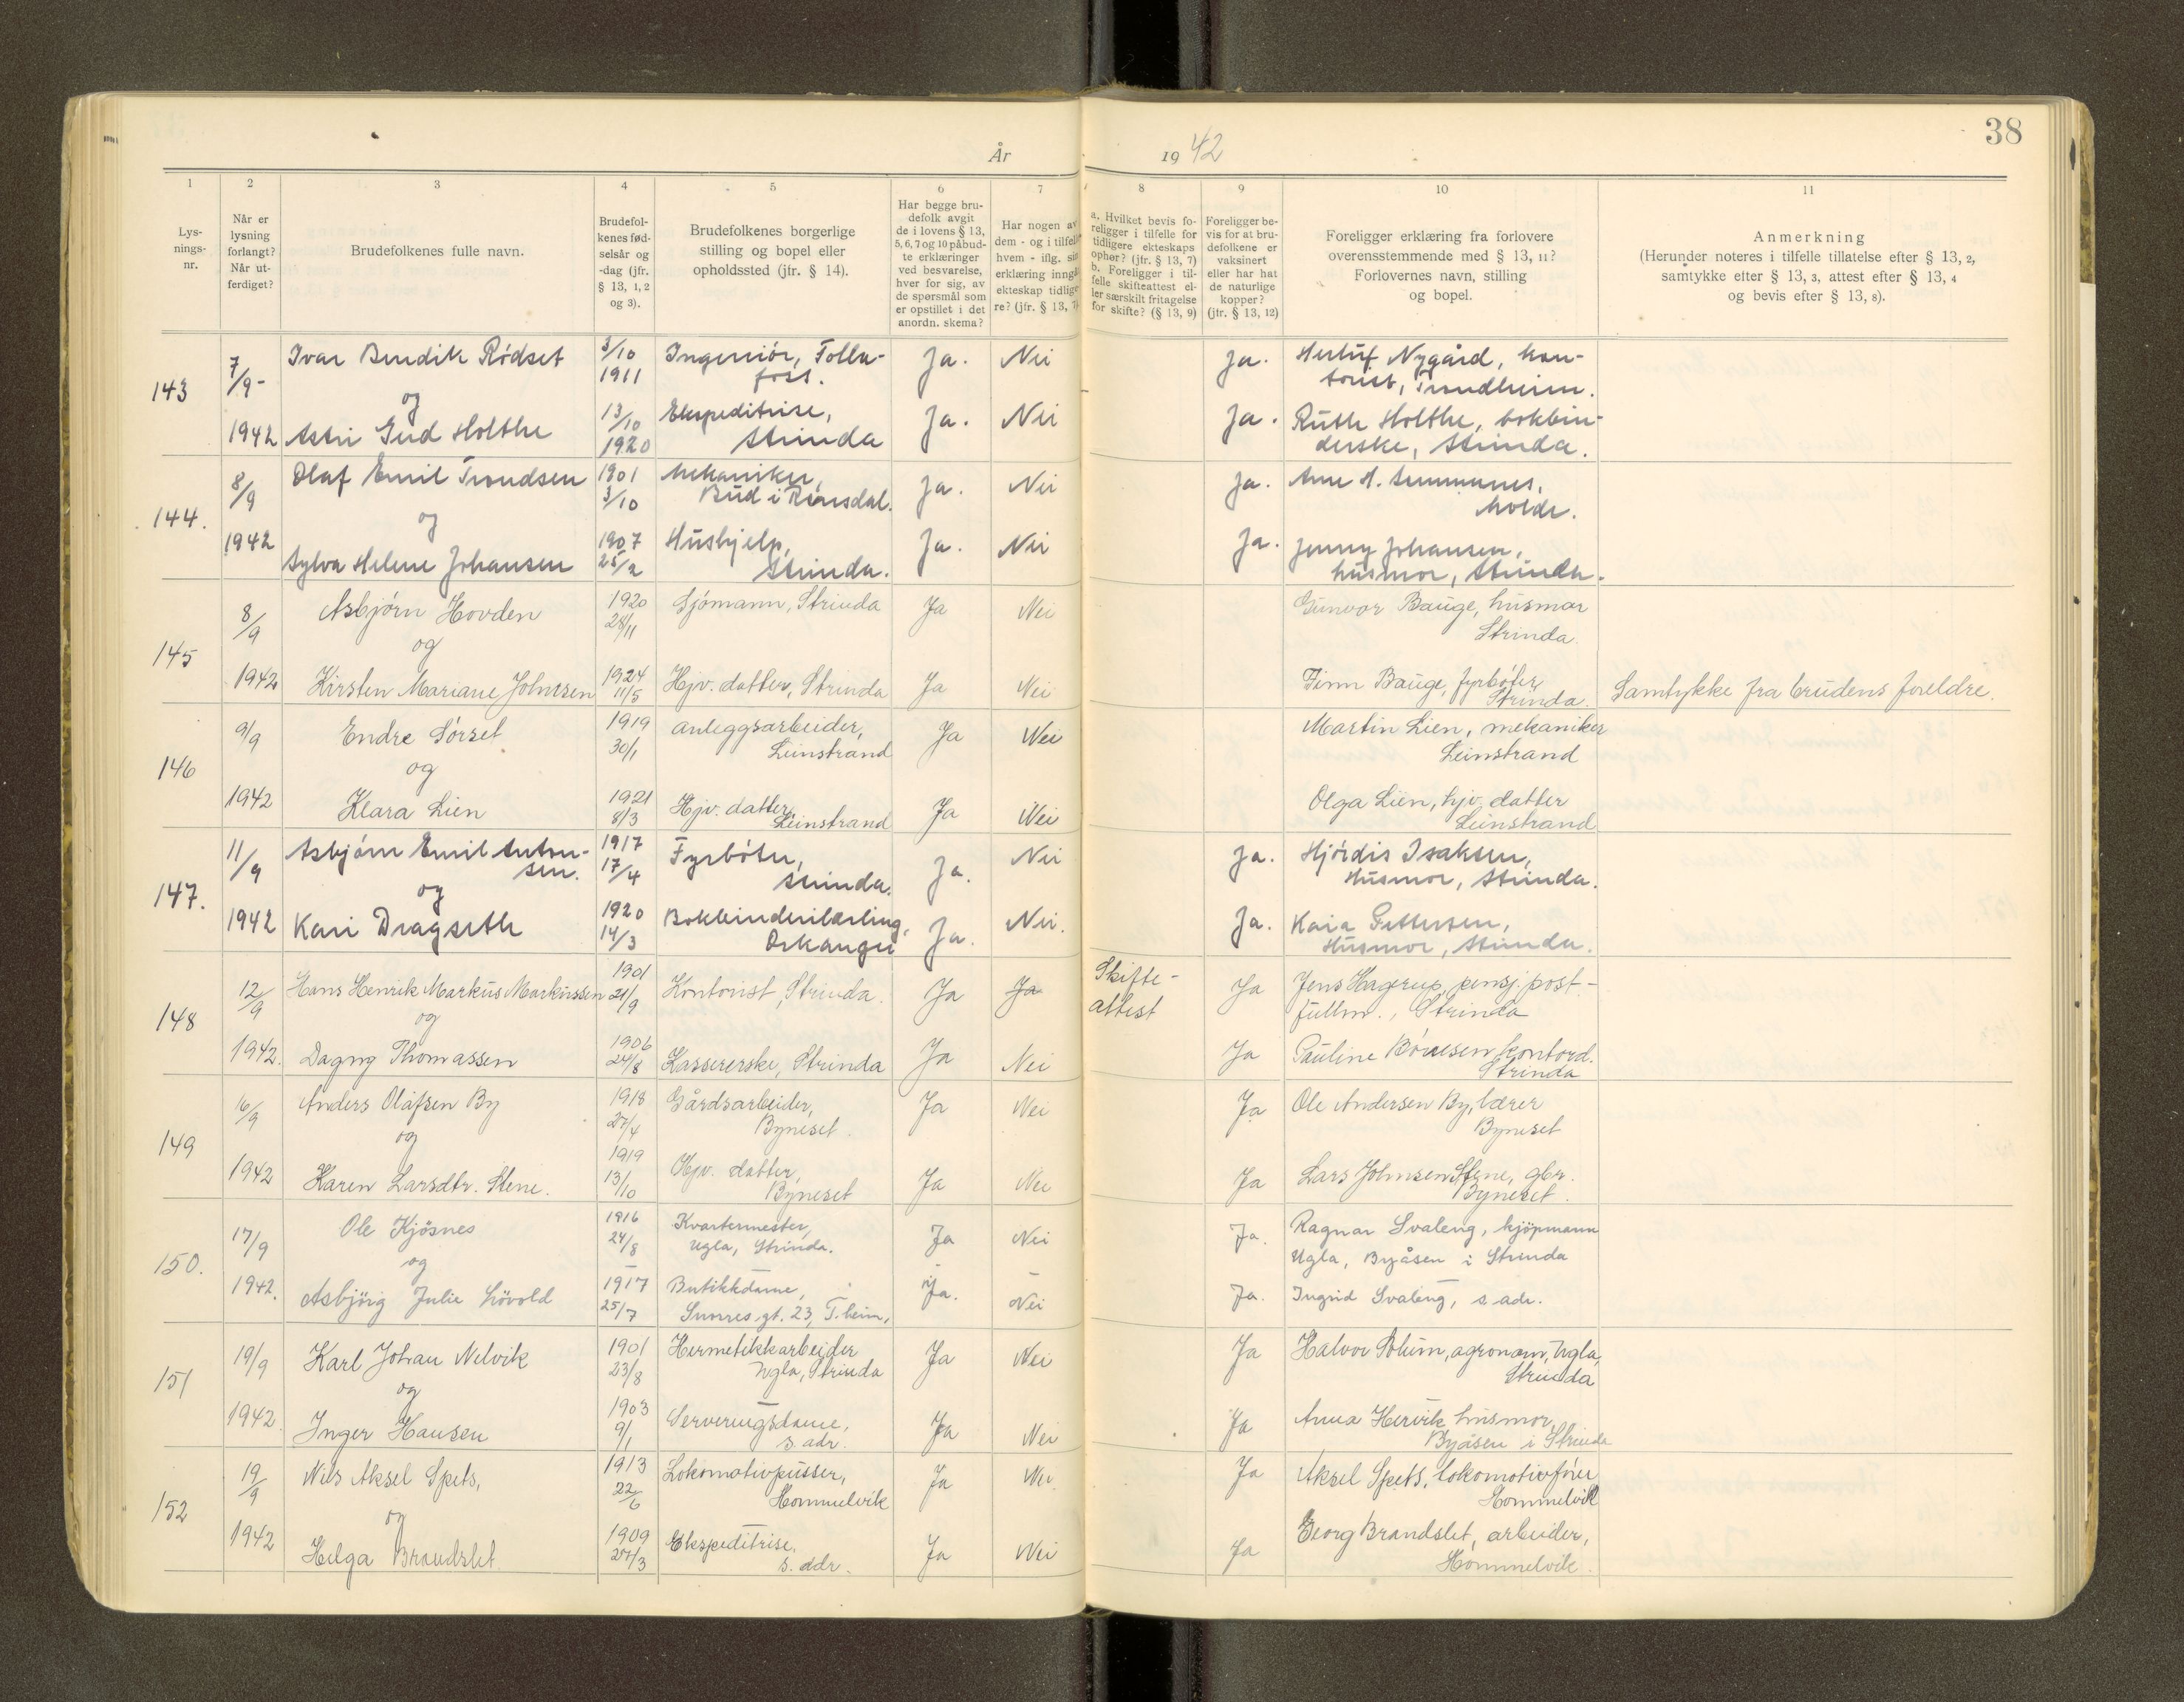 38
År 1942
1
2
3
4
5
6
7
8
9
10
11
Lys-
nings-
nr.
Når er
lysning
forlangt?
Når ut-
ferdiget?
Brudefolkenes fulle navn.
Brudefol-
kenes fød-
selsår og
-dag (jfr.
§ 13, 1, 2
og 3).
Brudefolkenes borgerlige
stilling og bopel eller
opholdssted (jfr. § 14).
Har begge bru-
defolk avgit
de i lovens § 13,
5, 6, 7 og 10 påbud-
te erklæringer
ved besvarelse,
hver for sig, av
de spørsmål som
er opstillet i det
anordn. skema?
Har nogen av
dem - og i tilfelle
hvem - iflg. sin
erklæring inngå
ekteskap tidlige
re? (jfr. § 13, 7)
a. Hvilket bevis fo-
religger i tilfelle for
tidligere ekteskaps
ophør? (jfr. § 13, 7)
b. Foreligger i til-
felle skifteattest el-
ler særskilt fritagelse
for skifte? (§ 13, 9)
Foreligger be-
vis for at bru-
defolkene er
vaksinert
eller har hat
de naturlige
kopper?
(jfr. § 13, 12)
Foreligger erklæring fra forlovere
overensstemmende med § 13, 11?
Forlovernes navn, stilling
og bopel.
Anmerkning
(Herunder noteres i tilfelle tillatelse efter § 13, 2,
samtykke efter § 13, 3, attest efter § 13, 4
og bevis efter § 13, 8).
143
7/9-
1942
Ivar Bendik Rødset
og
Astri Gud Holthe
3/10
1911
Ingeniör, Folla-
foss.
Ja. Nei
Ja.
Herluf Nygård, kon-
torist, Trondheim.
13/10
1920
Ekspeditrise,
Strinda
Ja. Nei
Ja.
Ruth Holthe, bokbin-
derske, Strinda.
144.
8/9
1942
Olaf Emil Trondsen
og
Sylva Helene Johansen
1901
3/10
Mekaniker,
Bud i Romsdal.
Ja. Nei
Ja.
Arne H.
Molde.
1907
25/2
Hushjelp,
Strinda.
Ja. Nei
Ja.
Jenny Johansen,
husmor, Strinda.
145
8/9
1942
Asbjørn Hovden
og
Kirsten Mariane Johnsen
1920
28/11
Sjömann, Strinda
Ja Nei
Gunvor Bauge, husmor
Strinda.
1924
11/5
Hjv. datter, Strinda
Ja Nei
Finn Bauge, fyrbøter
Strinda.
Samtykke fra brudens foreldre.
146
9/9
1942
Endre Sørset
og
Klara Lien
1919
30/1
Anleggsarbeider,
Leinstrand
Ja Nei
Martin Lien, mekaniker
Leinstrand
1921
8/3
Hjv. datter,
Leinstrand
Ja Nei
Olga Lien, hjv. datter
Leinstrand
147.
11/9
1942
Asbjørn Emil Anton-
sen.
og
Kari Dragseth
1917
17/4
Fyrbøter,
Strinda.
Ja. Nei
Ja.
Hjördis Isaksen,
Husmor, Strinda.
1920
14/3
Bokbinderilærling,
Orkanger
Ja. Nei.
Ja.
Kaia Pettersen,
Husmor, Strinda.
148
12/9
1942.
Hans Henrik Markus Markussen
og
Dagny Thomassen
1901
21/9
Kontorist, Strinda.
Ja Ja
Skifte-
attest
Ja
Jens Hagerup, pensj. post-
fullm., Strinda
1906
24/8
Kassererske, Strinda
Ja Nei
Ja
Pauline Bønesen, kontord.
Strinda
149
16/9
1942
Anders Olafsen By
og
Karen Larsdtr. Stene.
1918
27/4
Gårdsarbeider,
Byneset.
Ja Nei
Ja
Ole Andersen By, lærer
Byneset
1919
13/10
Hjv. datter,
Byneset
Ja Nei
Ja
Lars Johnsen Stene, gbr.
Byneset.
150.
17/9
1942.
Ole Kjøsnes
og
Asbjörg Julie Lövold
1916
24/8
Kvartermester,
Ugla, Strinda.
Ja Nei
Ja.
Ragnar Svaleng, kjöpmann
Ugla, Byåsen i Strinda
1917
25/7
Butikkdame,
Snorres gt. 23, T.heim,
Ja. Nei
Ja.
Ingrid Svaleng, s. adr.
151
19/9
1942
Karl Johan Nelvik
og
Inger Hansen
1901
23/8
Hermetikkarbeider
Ugla, Strinda
Ja Nei
Ja
Halvor Solum, agronom, Ugla,
Strinda
1903
9/1
Serveringsdame,
s. adr.
Ja Nei
Ja
Anna Hervik, husmor,
Byåsen i Strinda
152
19/9
1942
Nils Aksel Spets,
og
Helga Brandslet
1913
22/6
Lokomotivpusser,
Hommelvik
Ja Nei
Ja
Aksel Spets, lokomotivfører
Hommelvik
1909
27/3
Ekspeditrise,
s. adr.
Ja Nei
Ja
Georg Brandslet, arbeider,
Hommelvik.